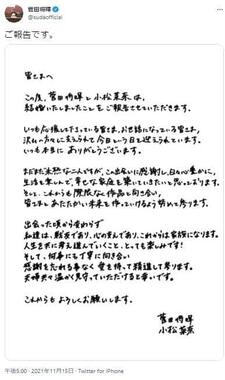 菅田将暉
@sudaofficial
ご報告です。
皆さまへ
この度、菅田将暉と小松菜奈は、
結婚いたしましたことをご報告させていただきます。
いつも応援して下さっている皆さま、お世話になっている皆さま、
沢山の方々に支えられて今日という日を迎えられています。
いつも本当にありがとうございます。
まだまだ未熟な二人ですが、この出会いに感謝し、日々心豊かに、
生活を楽しんで、幸せな家庭を築いていきたいと思っております。
そして、これからも際限なく作品と向き合い、
皆さまとあたたかい未来を作っていけるよう努めて参ります。
出会った頃から変わらず
私達は、戦友であり、心の友であり、これからは家族になります。
人生を共に歩み進んでいくこと、とっても楽しみです！
そして、何事にも丁寧に向き合い
感謝を忘れる事なく愛を持って精進して参ります。
夫婦共々温かく見守っていただけると幸いです。
これからもよろしくお願いします。
菅田将暉
小松菜奈
午後5:00 · 2021年11月15日 · Twitter for iPhone